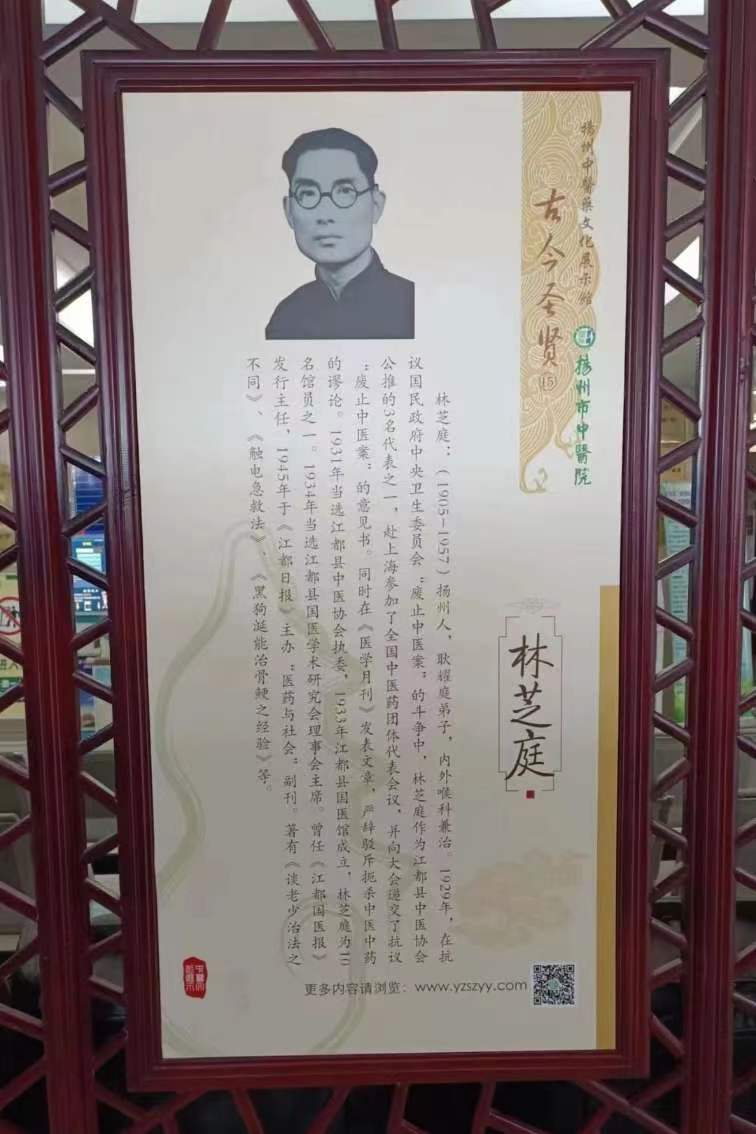 扬州中醫藥文化展示馆
揚州市中醫院
古今圣贤⑮
林芝庭
林芝庭：（1905-1957）扬州人，耿耀庭弟子，内外喉科兼治。1929年，在抗
议国民政府中央卫生委员会“废止中医案”的斗争中，林芝庭作为江都县中医协会
公推的3名代表之一，赴上海参加了全国中医药团体代表会议，并向大会递交了抗议
“废止中医案”的意见书。同时在《医学月刊》发表文章，严辞驳斥扼杀中医中药
的谬论。1931年当选江都县中医协会执委，1933年江都县国医馆成立，林芝庭为10
名馆员之一。1934年当选江都县国医学术研究会理事会主席。曾任《江都国医报》
发行主任，1945年于《江都日报》主办“医药与社会”副刊。著有《谈老少治法之
不同》、《触电急救法》、《黑狗涎能治骨鲠之经验》等。
更多内容请浏览：www.yzszyy.com